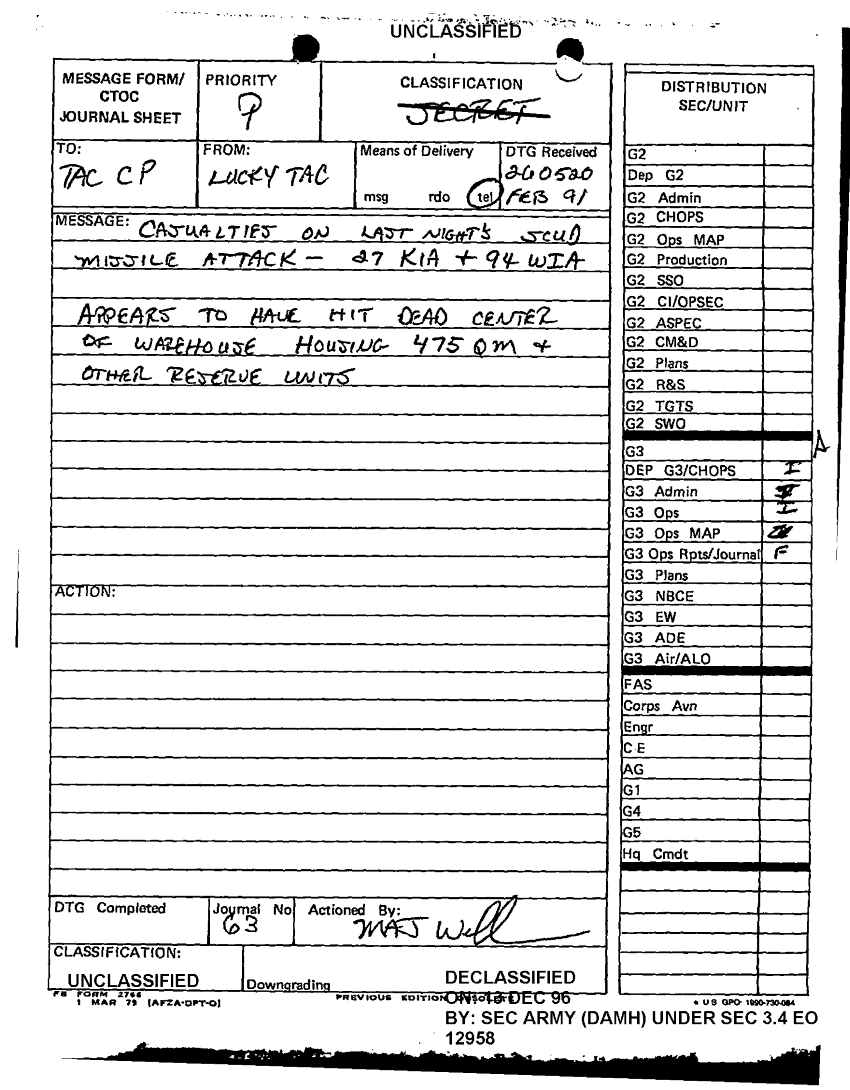 UNCLASSIFIED
MESSAGE FORM/
CTOC
JOURNAL SHEET
PRIORITY
P
CLASSIFICATION
SECRET
TO:
TAC CP
FROM:
LUCKY TAC
Means of Delivery
msg rdo tel
DTG Received
260520
FEB 91
MESSAGE: CASUALTIES ON LAST NIGHT'S SCUD
MISSILE ATTACK - 27 KIA + 94 WIA
APPEARS TO HAVE HIT DEAD CENTER
OF WAREHOUSE HOUSING 475 QM +
OTHER RESERVE UNITS
ACTION:
DTG Completed
Journal No
63
Actioned By:
MAJ
CLASSIFICATION:
UNCLASSIFIED
Downgrading
FB FORM 2766
1 MAR 79 (AFZA-DPT-O)
PREVIOUS EDITION
DECLASSIFIED
ON: 13 DEC 96
BY: SEC ARMY (DAMH) UNDER SEC 3.4 EO
12958
DISTRIBUTION
SEC/UNIT
G2
Dep G2
G2 Admin
G2 CHOPS
G2 Ops MAP
G2 Production
G2 SSO
G2 CI/OPSEC
G2 ASPEC
G2 CM&D
G2 Plans
G2 R&S
G2 TGTS
G2 SWO
G3 A
DEP G3/CHOPS I
G3 Admin
G3 Ops I
G3 Ops MAP
G3 Ops Rpts/Journal F
G3 Plans
G3 NBCE
G3 EW
G3 ADE
G3 Air/ALO
FAS
Corps Avn
Engr
C E
AG
G1
G4
G5
Hq Cmdt
US GPO: 1990-730-084